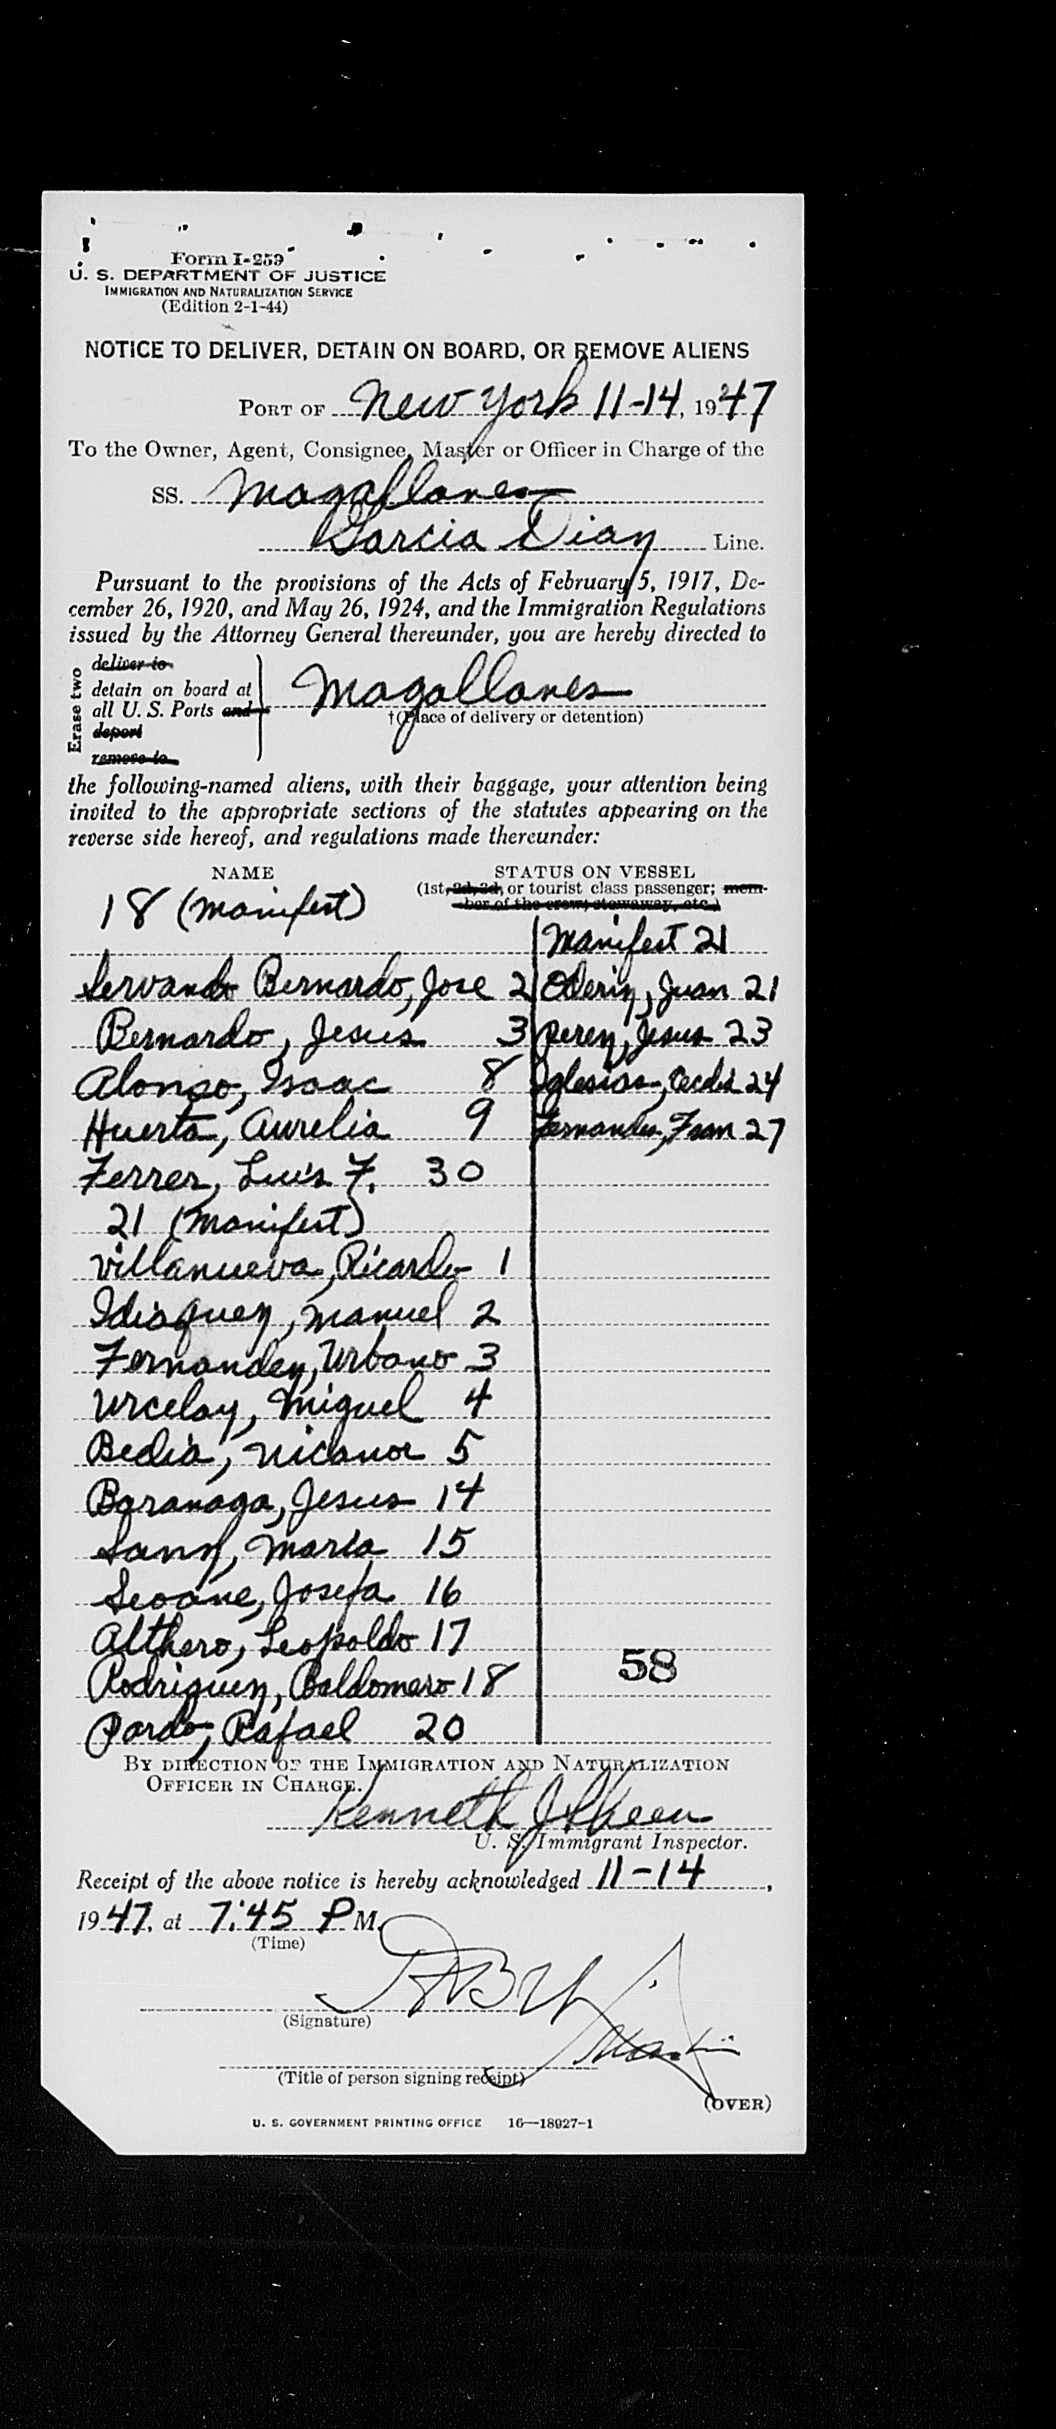 Form I-259
U. S. DEPARTMENT OF JUSTICE
IMMIGRATION AND NATURALIZATION SERVICE
(Edition 2-1-44)
NOTICE TO DELIVER, DETAIN ON BOARD, OR REMOVE ALIENS
PORT OF New York 11-14, 1947
To the Owner, Agent, Consignee, Master or Officer in Charge of the
SS. Magallanes
Garcia Diaz Line.
Pursuant to the provisions of the Acts of February 5, 1917, De-
cember 26, 1920, and May 26, 1924, and the Immigration Regulations
issued by the Attorney General thereunder, you are hereby directed to
Erase two
deliver to
detain on board at
all U. S. Ports and
deport
remove to
Magallanes
†(Place of delivery or detention)
the following-named aliens, with their baggage, your attention being
invited to the appropriate sections of the statutes appearing on the
reverse side hereof, and regulations made thereunder:
NAME
18 (Manifest)
Servando Bernardo, Jose 2
Bernardo, Jesus 3
Alonso, Isaac 8
Huerta, Aurelia 9
Ferrer, Luis F. 30
21 (Manifest)
Villanueva, Ricardo 1
Idiaquez, Manuel 2
Fernandez, Urbano 3
Urcelay, Miguel 4
Bedia, Nicanor 5
Baranaga, Jesus 14
Sanz, Maria 15
Seoane, Josefa 16
Althero, Leopoldo 17
Rodriguez, Baldomero 18
Pardo, Rafael 20
STATUS ON VESSEL
(1st, 2d, 3d, or tourist class passenger; mem-
ber of the crew; stowaway, etc.)
Manifest 21
Juan 21
Perez, Jesus 23
Iglesias, 24
Fernandez, Fran 27
58
BY DIRECTION OF THE IMMIGRATION AND NATURALIZATION
OFFICER IN CHARGE.
Kenneth J Skeen
U. S. Immigrant Inspector.
Receipt of the above notice is hereby acknowledged 11-14,
1947, at 7:45 P M.
(Time)
(Signature)
(Title of person signing receipt)
(OVER)
U. S. GOVERNMENT PRINTING OFFICE 16—18927-1